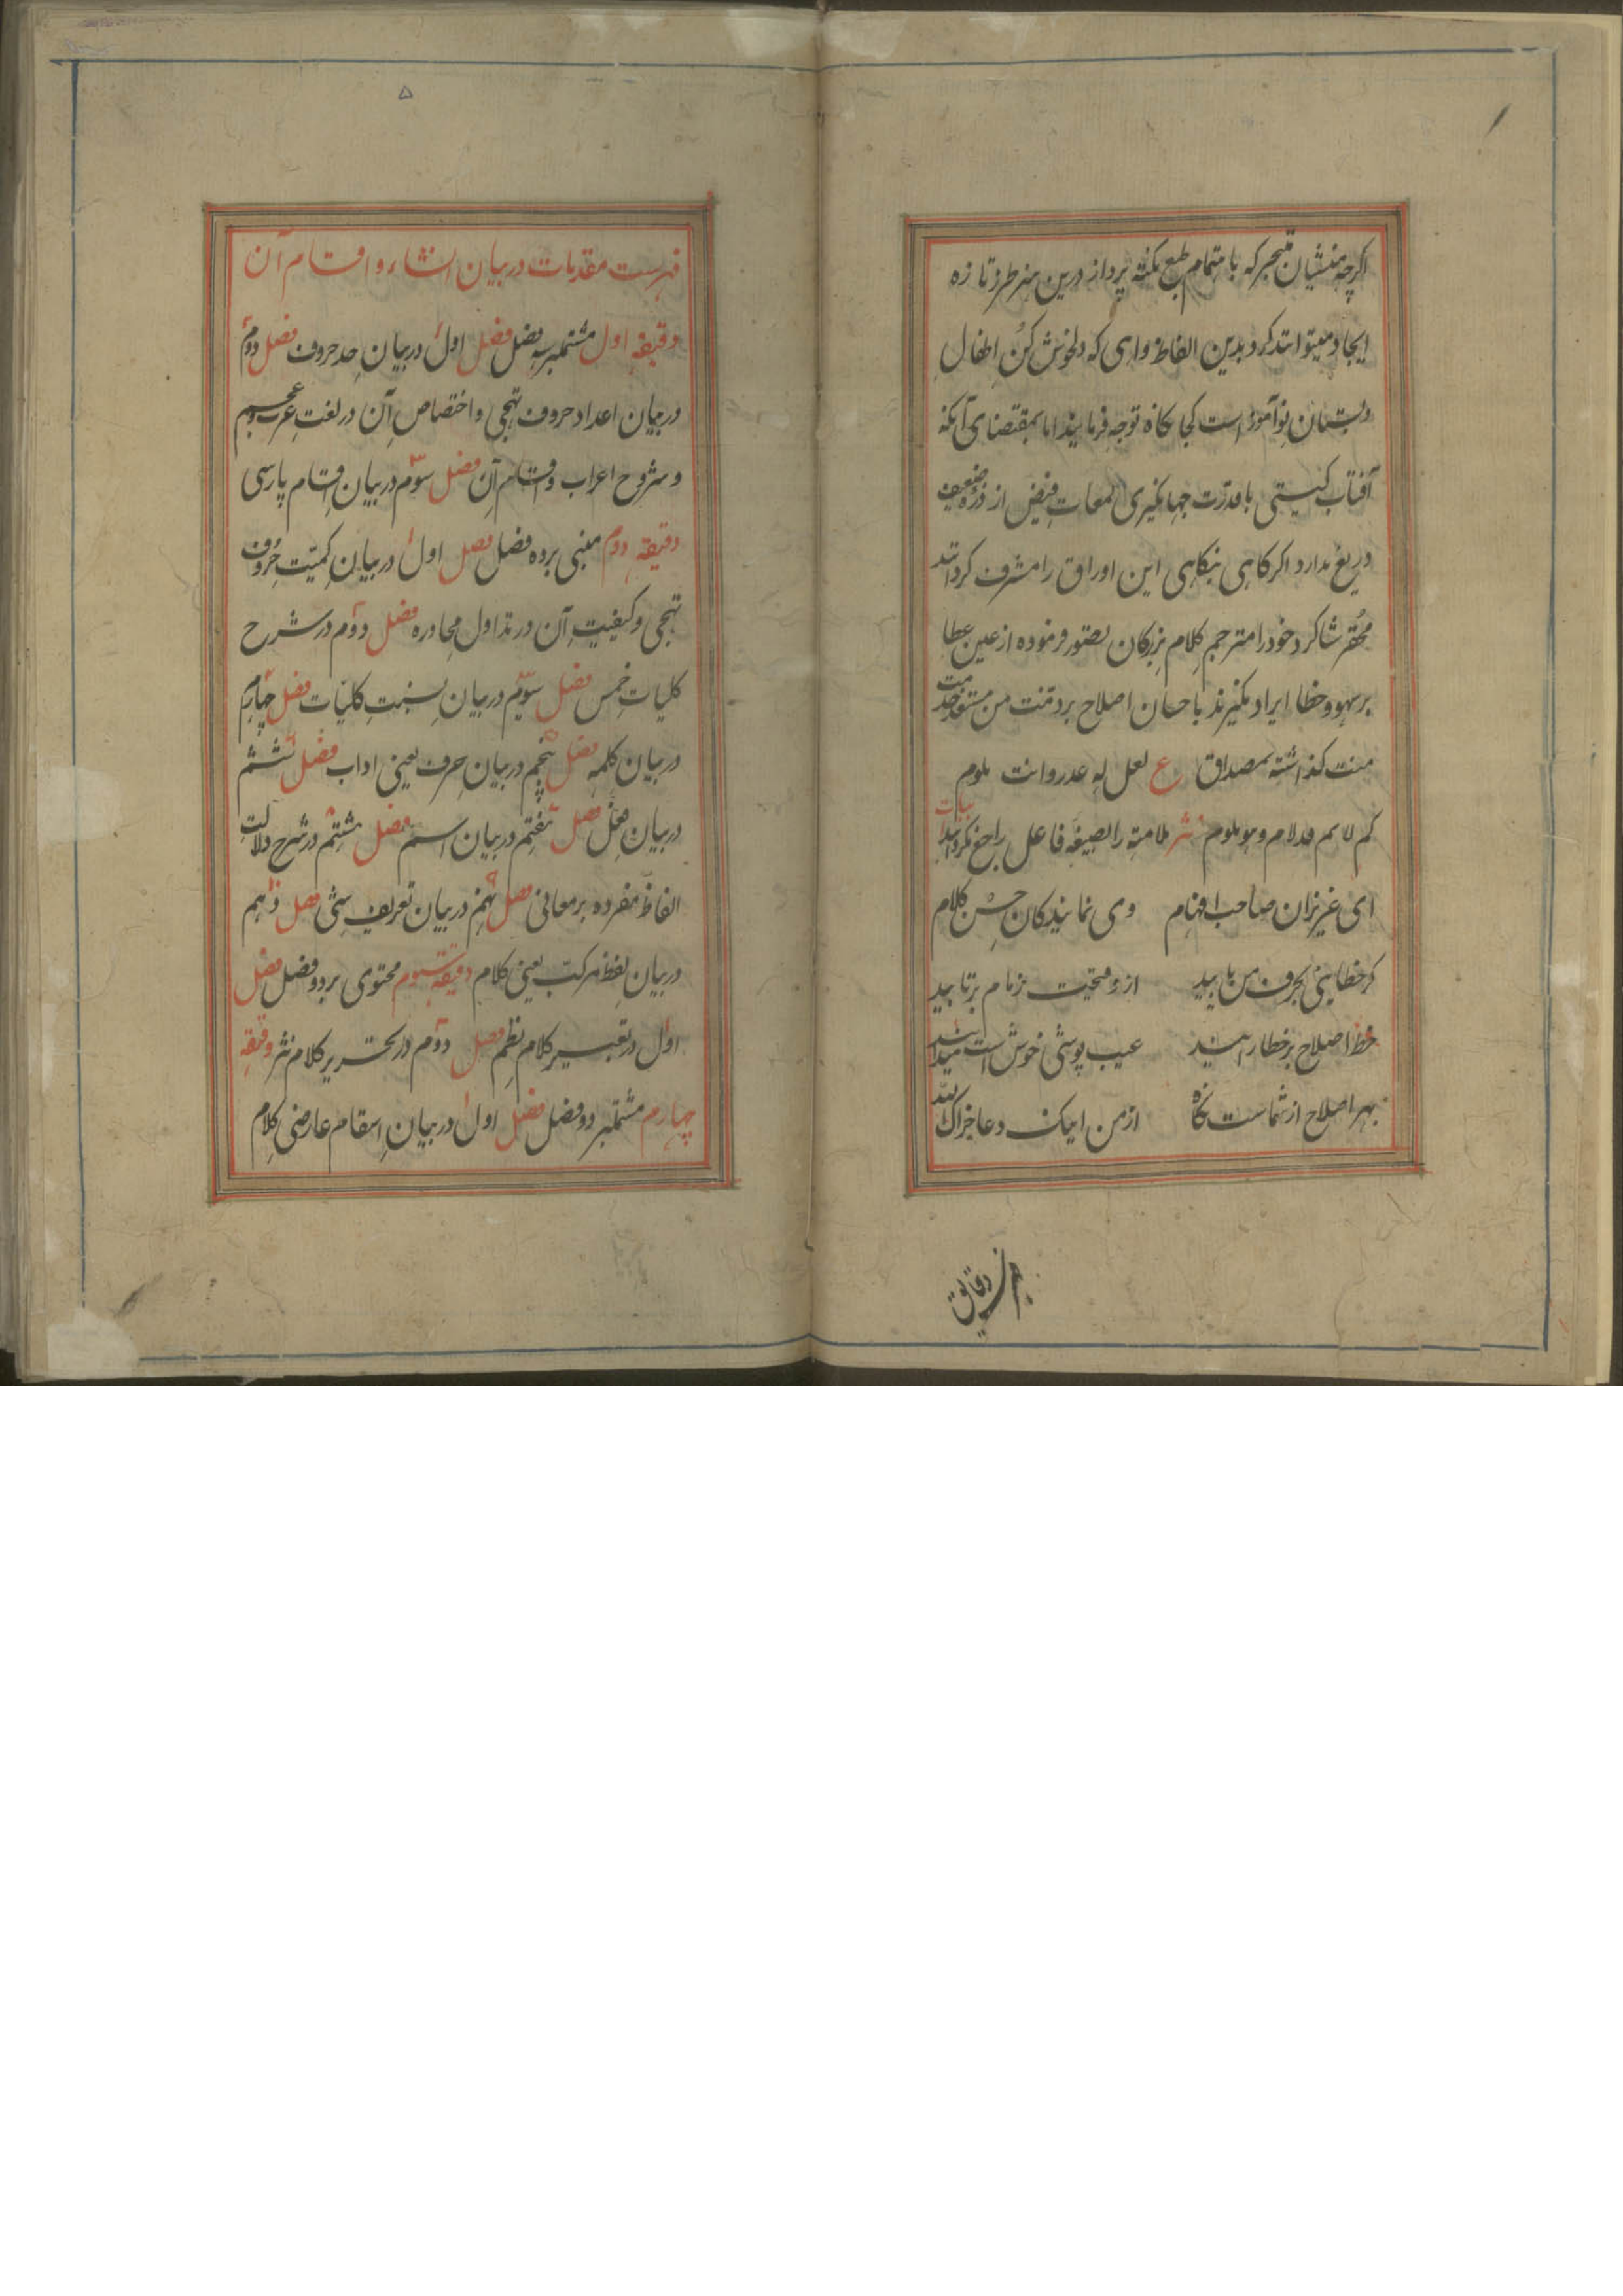 اگرچه منشیان متبحر که باهتمام طبع نکته پرداز درین هنر طرز تازه
ایجاد میتوانند کرد بدین الفاظ واهی که دلخوش کن اطفال
دبستان نوآموز است کجا نگاه توجه فرمایند اما بمقتضای آنکه
آفتاب گیتی با قدرت جهانگیری لمعات فیض از ذره ضعیف
دریغ ندارد اگر گاهی بنگاهی این اوراق را مشرف گردانند
محقر شاگرد خود را مترجم کلام بزرگان تصور فرموده از عین عطا
بر سهو و خطا ایراد نگیرند باحسان اصلاح بر ذمت من مستعد خدمت
منت گذاشته بمصداق ع لعل له عذر وانت تلوم
کم لائم قد لام وهو ملوم نثر ملامة را بصیغه فاعل راجع نگردانند ابیات
ای عزیزان صاحب افهام وی نمایندگان حسن کلام
گر خطایی بحرف من یابید از فضیحت زمام برتابید
خط اصلاح بر خطا رانید عیب پوشی خوش است میدانید
بهر اصلاح از شماست نگاه از من اینک دعا جزاک الله
فهرست دقایق
۵
فهرست مقدمات در بیان انشاء و اقسام آن
دقیقه اول مشتملبر سه فصل فصل اول در بیان حد حروف فصل دوم
در بیان اعداد حروف تهجی و اختصاص آن در لغت عرب و عجم
و شروح اعراب و اقسام آن فصل سوم در بیان اقسام پارسی
دقیقه دوم مبنی بر ده فصل فصل اول در بیان کمیت حروف
تهجی و کیفیت آن در تداول محاوره فصل دوم در شرح
کلیات خمس فصل سوم در بیان نسبت کلیات فصل چهارم
در بیان کلمه فصل پنجم در بیان حرف یعنی ادات فصل ششم
در بیان فعل فصل هفتم در بیان اسم فصل هشتم در شرح دلالت
الفاظ مفرده بر معانی فصل نهم در بیان تعریف شی فصل دهم
در بیان لفظ مرکب یعنی کلام دقیقه سیوم محتوی بر دو فصل فصل
اول در تعبیر کلام نظم فصل دوم در تحریر کلام نثر دقیقه
چهارم مشتملبر دو فصل فصل اول در بیان اسقام عارضی کلام